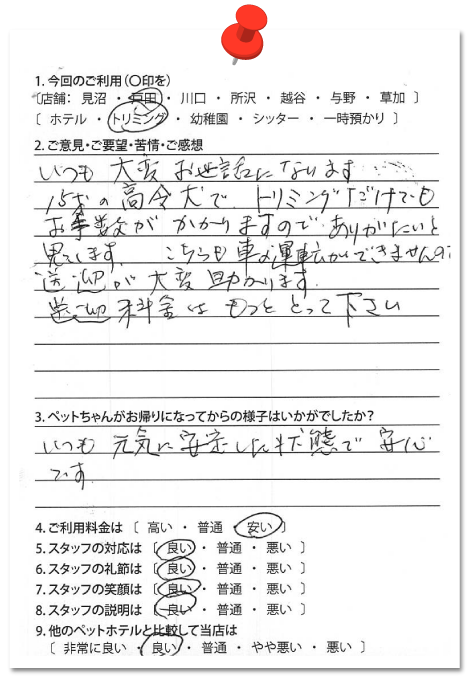 1. 今回のご利用(〇印を)
〔店舗： 見沼 ・ 戸田 ・ 川口 ・ 所沢 ・ 越谷 ・ 与野 ・ 草加 〕
〔 ホテル ・ トリミング ・ 幼稚園 ・ シッター ・ 一時預かり 〕
2. ご意見・ご要望・苦情・ご感想
いつも 大変 お世話になります
15才の高令犬で トリミングだけでも
お手数がかかりますので ありがたいと
思てします。 こちらも車の運転ができませんので
送迎が大変助かります。
送迎料金は もっと とって下さい
3. ペットちゃんがお帰りになってからの様子はいかがでしたか？
いつも 元気に安定した状態で 安心
です。
4. ご利用料金は 〔 高い ・ 普通 ・ 安い 〕
5. スタッフの対応は 〔 良い ・ 普通 ・ 悪い 〕
6. スタッフの礼節は 〔 良い ・ 普通 ・ 悪い 〕
7. スタッフの笑顔は 〔 良い ・ 普通 ・ 悪い 〕
8. スタッフの説明は 〔 良い ・ 普通 ・ 悪い 〕
9. 他のペットホテルと比較して当店は
〔 非常に良い ・ 良い ・ 普通 ・ やや悪い ・ 悪い 〕